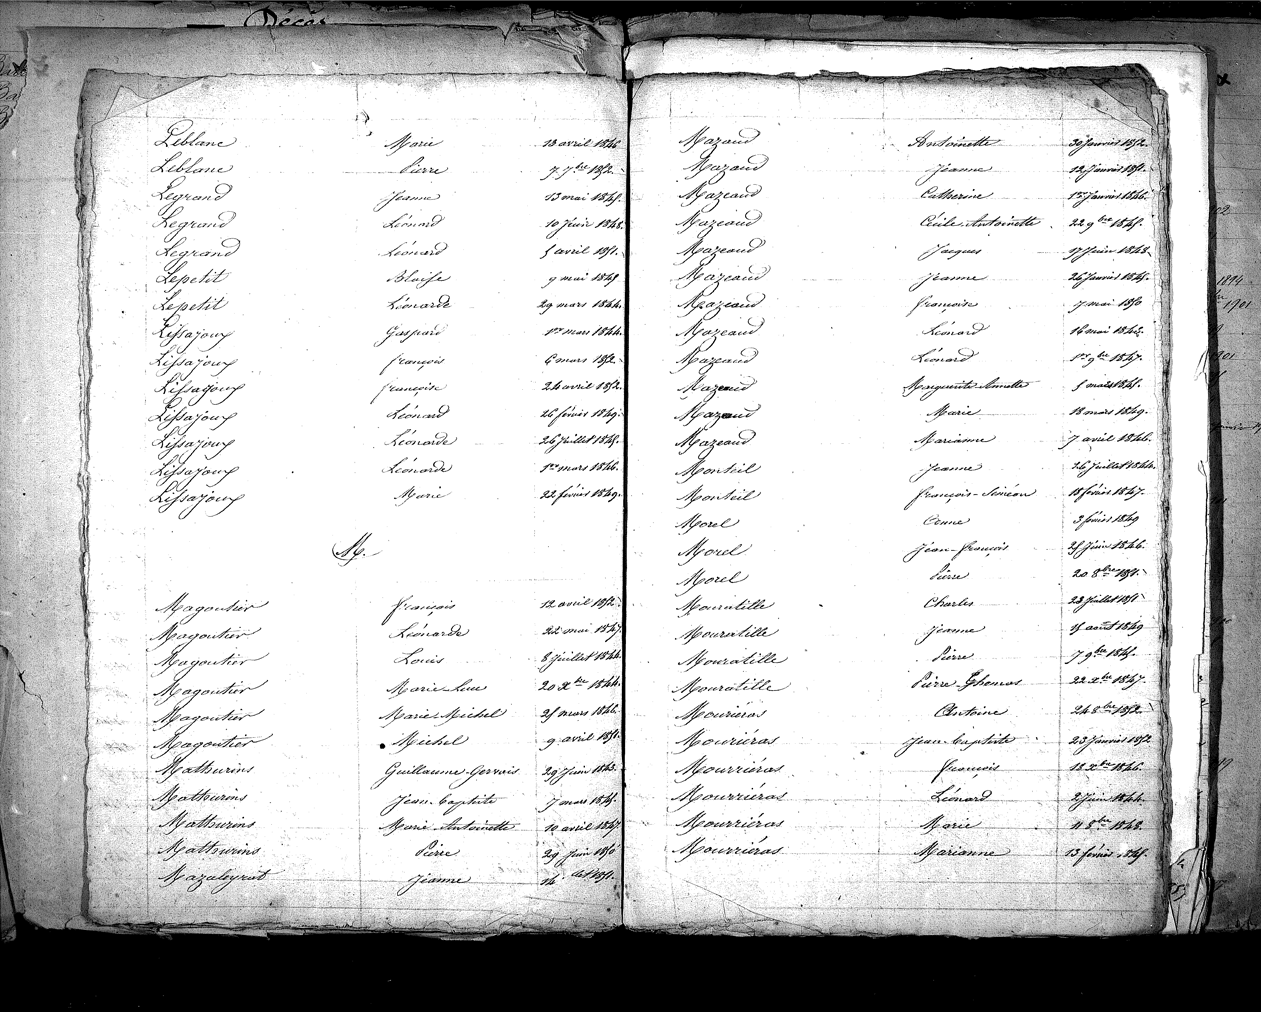 Décès
Leblanc Marie 13 avril 1846
Leblanc Pierre 7 7bre 1852.
Legrand Jeanne 13 mai 1845.
Legrand Léonard 10 Juin 1848.
Legrand Léonard 5 avril 1851.
Lepetit Blaise 9 mai 1849
Lepetit Léonarde 29 mars 1844.
Lissajoux Gaspard 1er mars 1844.
Lissajoux françois 6 mars 1852.
Lissajoux françoise 24 avril 1852.
Lissajoux Léonard 26 février 1849.
Lissajoux Léonarde 26 Juillet 1845.
Lissajoux Léonarde 1er mars 1846.
Lissajoux Marie 22 février 1849.
M.
Magoutier françois 12 avril 1852.
Magoutier Léonarde 22 mai 1847.
Magoutier Louis 8 Juillet 1844.
Magoutier Marie 20 Xbre 1844.
Magoutier Marie Michel 25 mars 1846.
Magoutier Michel 9 avril 1851.
Mathurins Guillaume Gervais 29 Juin 1843.
Mathurins Jean-Baptiste 7 mars 1845.
Mathurins Marie Antoinette 10 avril 1847.
Mathurins Pierre 29 Juin 1850
Mazaleyrat Jeanne 14 1851.
Mazaud Antoinette 30 Janvier 1852.
Mazaud Jeanne 12 Janvier 1851.
Mazeaud Catherine 1er Janvier 1846.
Mazeaud Cécile Antoinette 22 9bre 1845.
Mazeaud Jacques 17 Juin 1848.
Mazeaud Jeanne 26 Janvier 1845.
Mazeaud françoise 7 mai 1850
Mazeaud Léonard 16 mai 1843.
Mazeaud Léonard 1er 9bre 1847.
Mazeaud Marguerite Annette 5 mars 1845.
Mazeaud Marie 18 mars 1849.
Mazeaud Marianne 7 avril 1846.
Monteil Jeanne 26 Juillet 1844.
Monteil françois-Siméon 18 février 1847.
Morel Anne 3 février 1849
Morel Jean-françois 25 Juin 1846.
Morel Pierre 20 8bre 1851.
Mouratille Charles 23 Juillet 1851
Mouratille Jeanne 15 août 1849
Mouratille Pierre 7 9bre 1845.
Mouratille Pierre Thomas 22 Xbre 1847.
Mouriéras Antoine 24 8bre 1852.
Mouriéras Jean-Baptiste 23 Janvier 1852
Mourriéras françois 18 Xbre 1846.
Mourriéras Léonard 2 Juin 1844.
Mourriéras Marie 11 8bre 1848.
Mourriéras Marianne 13 février 1845.